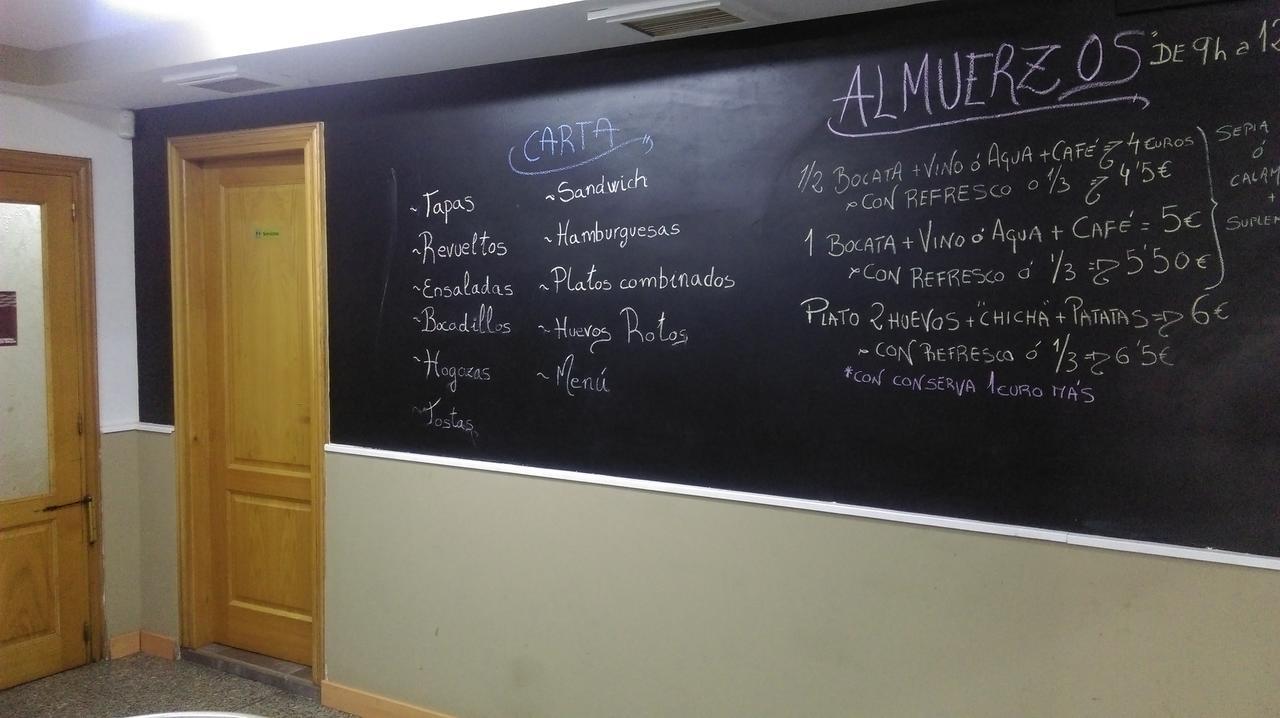 CARTA
~Tapas
~Revueltos
~Ensaladas
~Bocadillos
~Hogazas
~Tostas
~Sandwich
~Hamburguesas
~Platos combinados
~Huevos Rotos
~Menú
ALMUERZOS "DE 9h a
1/2 BOCATA + VINO Ó AGUA + CAFÉ ⇒ 4 EUROS
CON REFRESCO O 1/3 ⇒ 4'5€
1 BOCATA + VINO Ó AGUA + CAFÉ = 5€
CON REFRESCO Ó 1/3 ⇒ 5'50€
SEPIA
Ó
CALAM
+
SUPLEM
PLATO 2 HUEVOS + "CHICHA" + PATATAS ⇒ 6€
CON REFRESCO Ó 1/3 ⇒ 6'5€
*CON CONSERVA 1 EURO MÁS